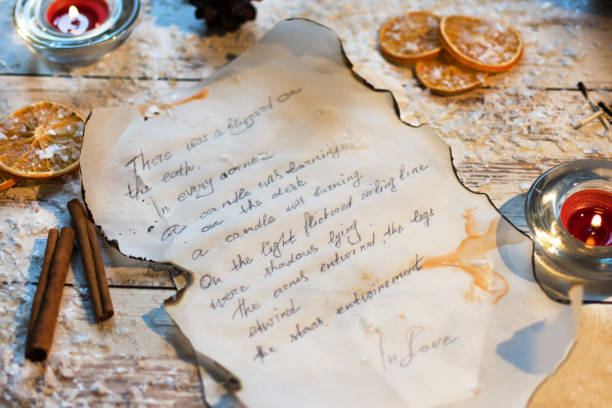 There was a blizzard on
the eath.
In every corner
a candle was burning
on the desk
a candle was burning
On the light flickered ceiling line
were shadows lying
The arms entwind, the legs
etwind
the stars entwinement
In Love